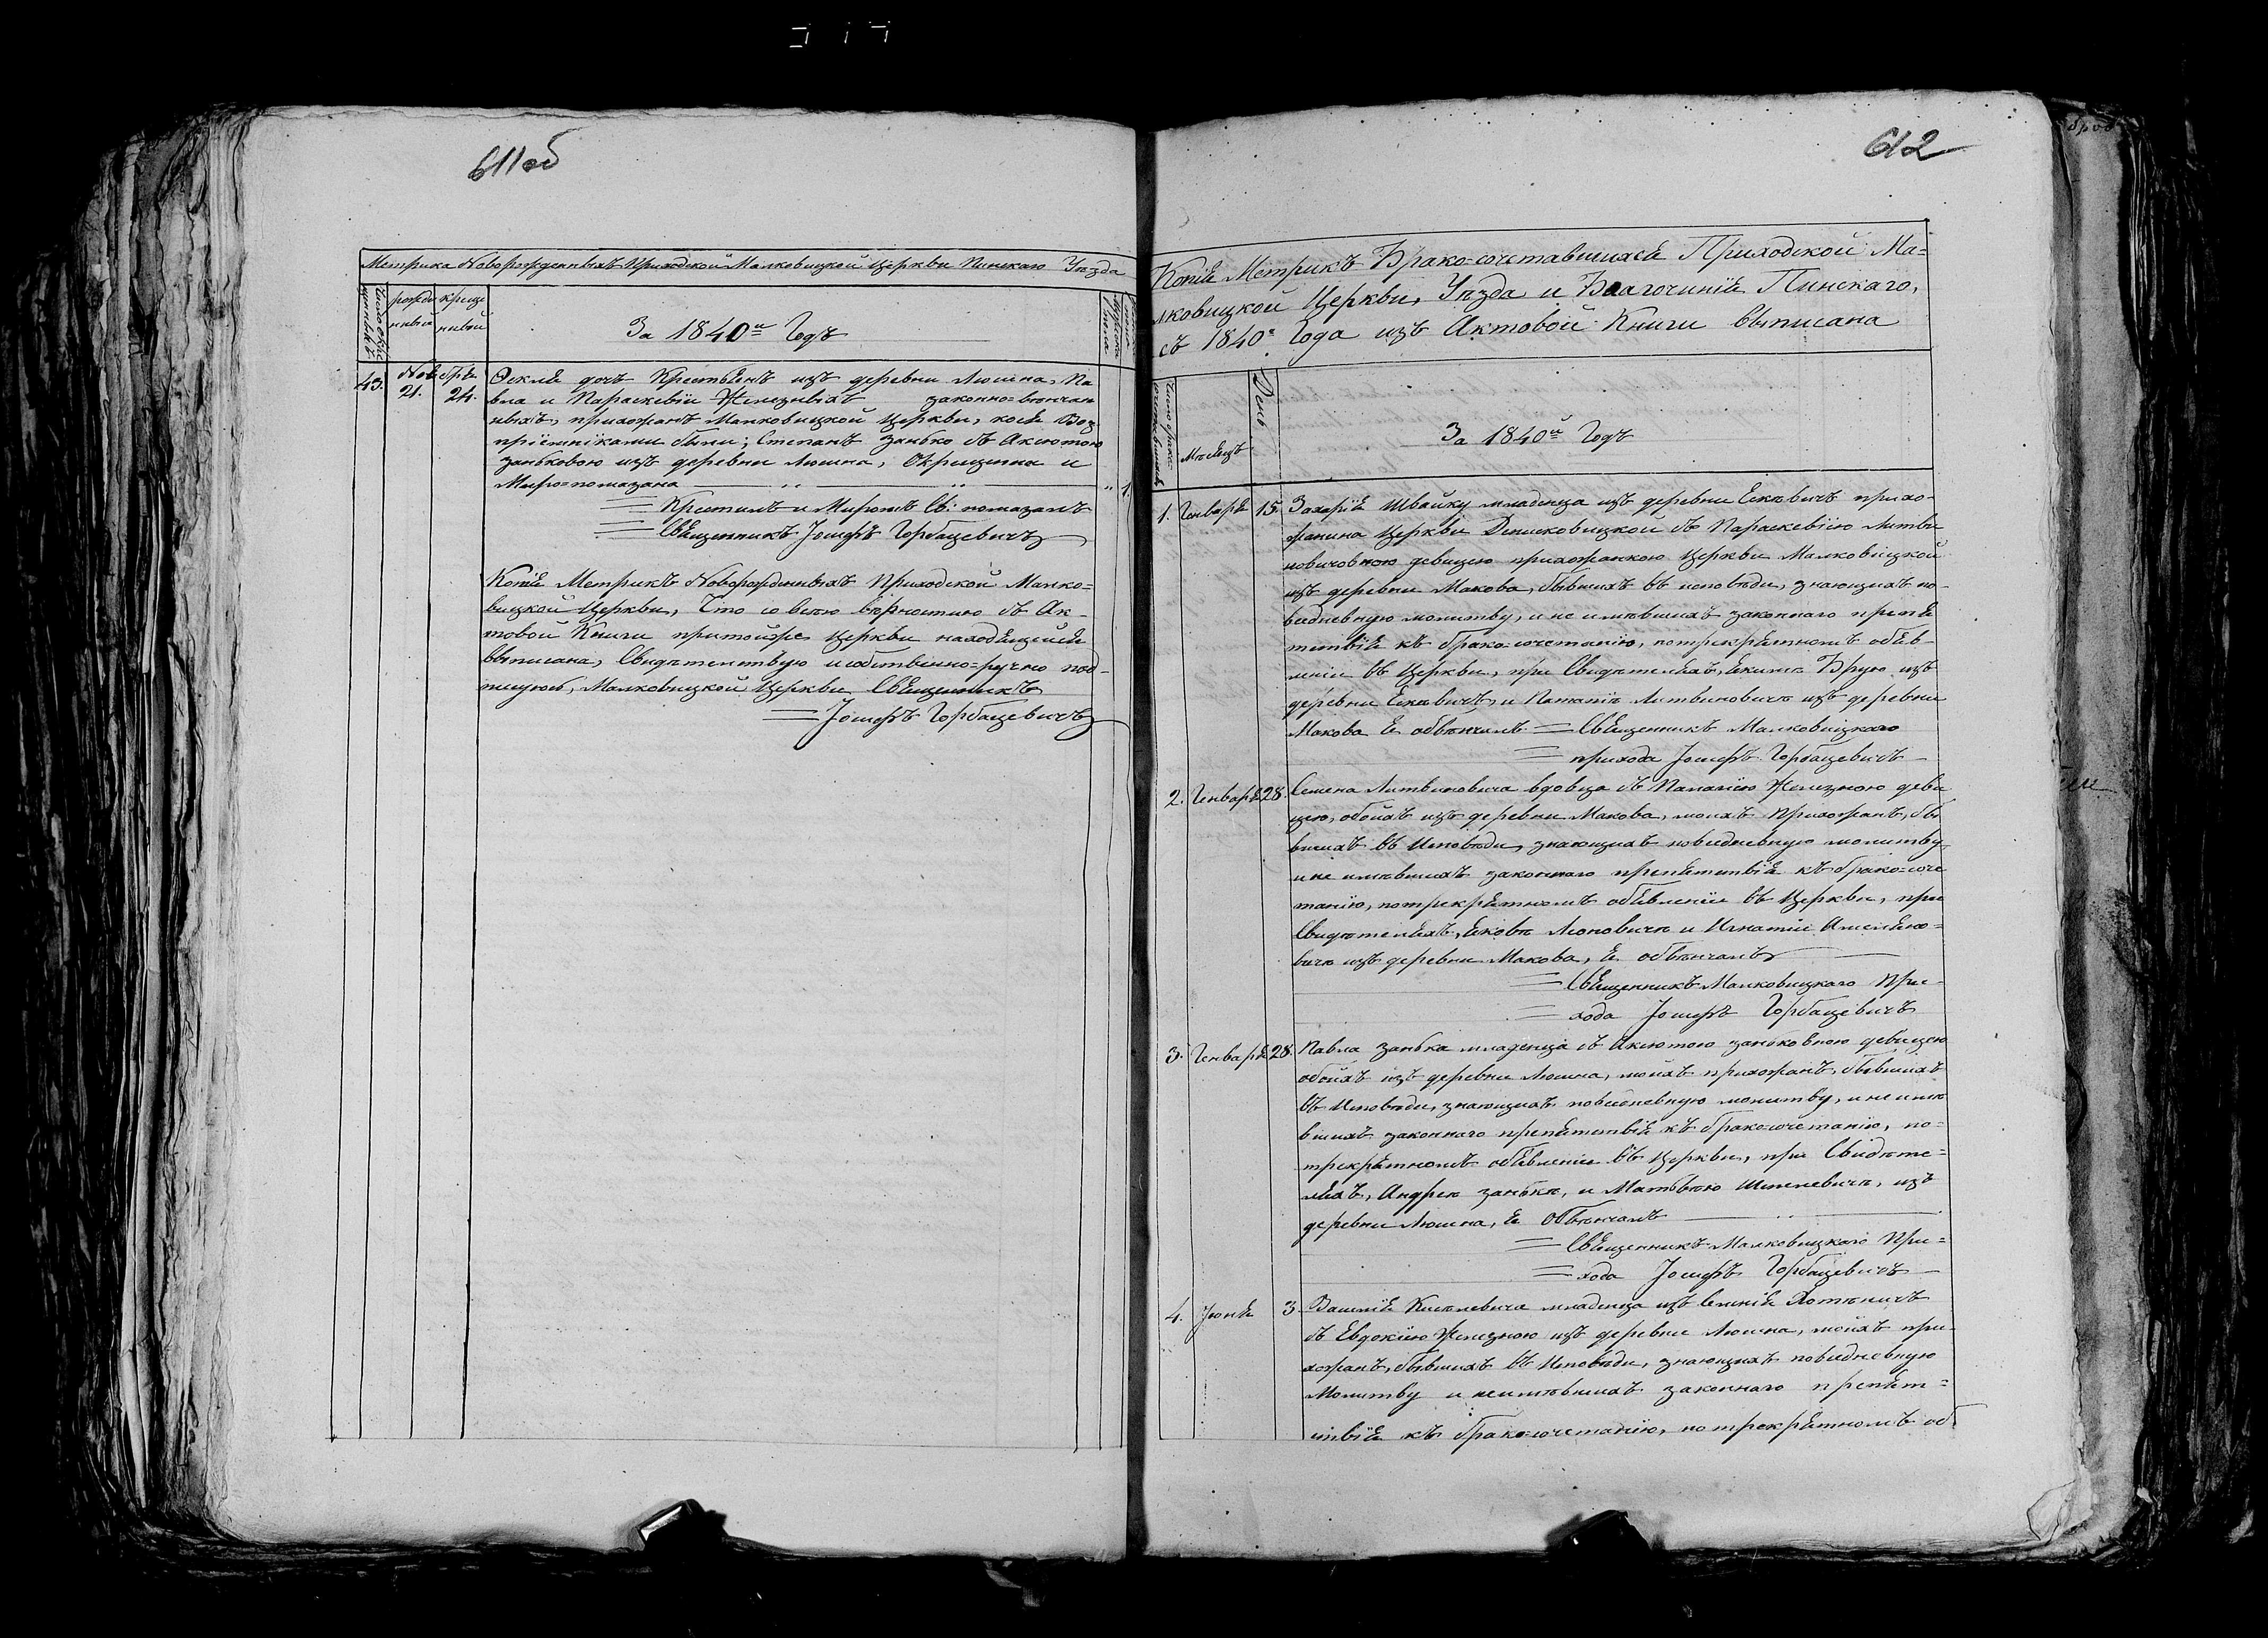 611об
Метрика Новорожденныхъ Приходской Малковицкой Церкви Пинскаго Уѣзда
За 1840й Годъ
43. Ноябрѣ 21. 24.
Ѳеклѣ дочь Крестьѣнъ изъ деревни Люсина, Па
вла и Параскевіи Железныхъ законно-вѣнчан
ныхъ, прихожанъ Малковицкой Церкви, коеѣ Воз
пріемниками были; Степанъ Занько съ Аксютою
Заньковою изъ деревни Люсина, Окрещенна и
Миро=помазана 1.
Крестилъ и Миромъ Св: помазалъ
Свѣщенникъ Іосифъ Горбацевичъ
Копіѣ Метрикъ Новорожденныхъ Приходской Малко=
вицкой Церкви, Что со всею вѣрностію съ Ак-
товой Книги притойже Церкви находѣщейсѣ
выписана, Свидѣтельствую и собственно=ручно под-
писуюсь, Малковицкой Церкви Свѣщенникъ
Іосифъ Горбацевичъ
612
Копіѣ Метрикъ Брако-сочетавшихсѣ Приходской Ма=
лковицкой Церкви, Уѣзда и Благочиніѣ Пинскаго,
съ 1840г Года изъ Актовой Книги выписана
Мѣсѣцъ День
За 1840й Годъ
1. Генварѣ 15. Захаріѣ Швайку младенца изъ деревни Ѣсковичъ прихо-
жанина Церкви Денисковицкой съ Параскевіею Литви
новичовною девицею прихожанкою Церкви Малковицкой
изъ деревни Макова, бывшихъ въ исповѣди, знающихъ по-
вседневную молитву, и не имѣвшихъ законнаго препѣ
тствіѣ къ брако-сочетанію, потрекрѣтномъ обѣв-
леніи въ Церкви, при Свидѣтелѣхъ, Ѣкима Брую изъ
деревни Ѣсковичъ, и Литвиновичѣ изъ деревни
Макова ѣ обвѣнчалъ Свѣщенникъ Малковицкаго
прихода Іосифъ Горбацевичъ
2. Генварѣ 28. Семена Литвиновича вдовца съ Палагіею Железною деви
цею, обоихъ изъ деревни Макова, моихъ Прихожанъ, бы
вшихъ въ Исповѣди, знающихъ повседневную молитву,
и не имѣвшихъ законнаго препѣтствіѣ къ брако=соче
танію, потрекрѣтномъ обѣвленіи въ Церкви, при
Свидѣтелѣхъ, Ѣковѣ Леоновичѣ и Игнатіи
вичѣ изъ деревни Макова, ѣ обвѣнчалъ
Свѣщенникъ Малковицкаго При-
хода Іосифъ Горбацевичъ
3. Генварѣ 28. Павла Занька младенца съ Аксютою Заньковною девицею
обоихъ изъ деревни Люсина, моихъ прихожанъ, бывшихъ
въ Исповѣди, знающихъ повседневную молитву, и не имѣ
вшихъ законнаго препѣтствіѣ къ брако-сочетанію, по-
трекрѣтномъ обѣвленіи въ Церкви, при Свидѣте-
лѣхъ, Андреѣ Занькѣ, и Матвѣю изъ
деревни Люсина, ѣ обвѣнчалъ
Свѣщенникъ Малковицкаго При=
хода Іосифъ Горбацевичъ
4. Іюнѣ 3. Василіѣ младенца изъ Хотѣничъ
съ Евдокіею Железною изъ деревни Люсина, моихъ при-
хожанъ, бывшихъ въ Исповѣди, знающихъ повседневную
Молитву и неимѣвшихъ законнаго препѣт=
ствіѣ къ брако-сочетанію, потрекрѣтномъ об